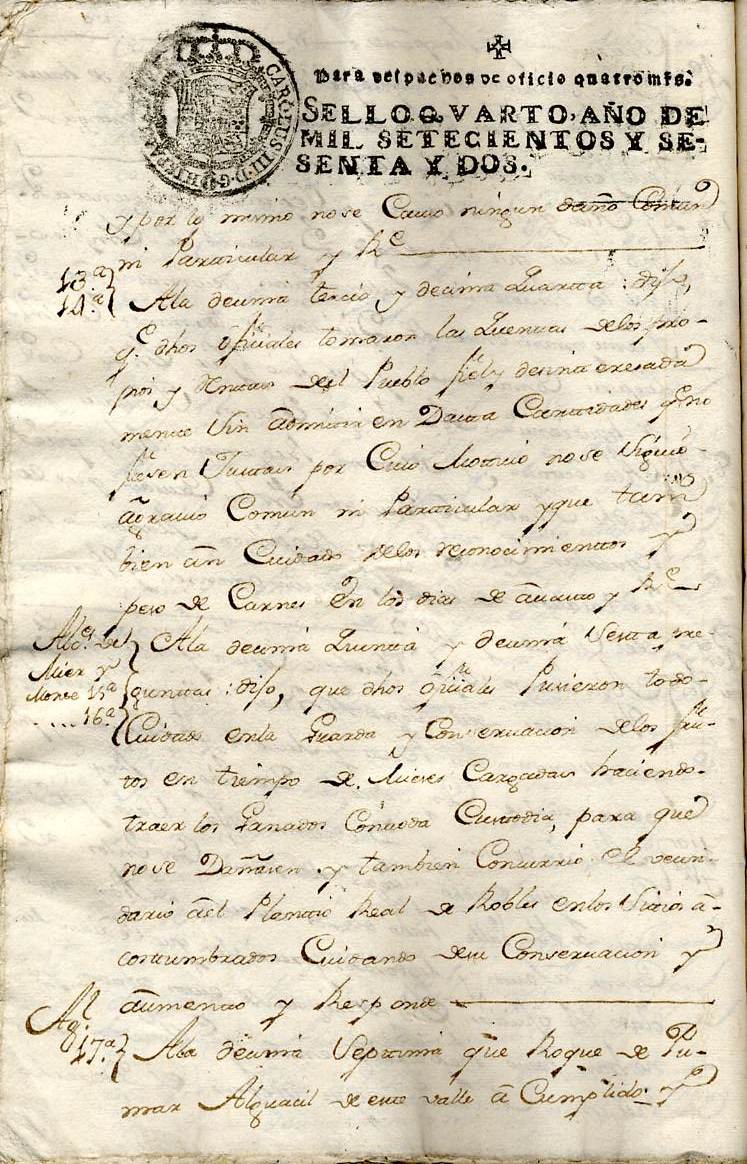 CAROLUS III D G HISPANIAR
Para despachos de oficio quatro mrs.
SELLO QVARTO, AÑO DE
MIL SETECIENTOS Y SE-
SENTA Y DOS.
y por lo mismo no se Causo ningun daño Comun
ni Particular y Re
13.ª
14.ª
Ala decima tercia y decima Quarta : dijo,
q.e dhos ofiziales tomaron las Quentas delos pro-
pios y Rentas del Pueblo fiel y desinteresada
mente sin admitir en Datta Cantidades q.e no
fuesen Justas por Cuio Motivio no se Siguio
agravio Comun ni Particular y que tam
bien an Cuidado delos reconocimientos y
peso de Carnes en los dias de y Re
Alc.es del
Mier y
Monte 15ª
16.ª
Ala decima Quinta y decima Sexta pre-
guntas : dijo, que dhos ofiziales Pusieron todo
Cuidado enla Guarda y Conservacion delos fru-
tos en tiempo de Mieses Cargadas haciendo
traer los Ganados Con toda Custodia, para que
no se Dañasen y tambien Concurrio el vecin-
dario ael Plantio Real de Robles enlos Sitios a-
costumbrados Cuidando desu Conservacion y
aumento y Responde
Al
Ag.l
17.ª
Ala decima Septima que Roque de Pu-
mar Alguacil de este valle a Cumplido y